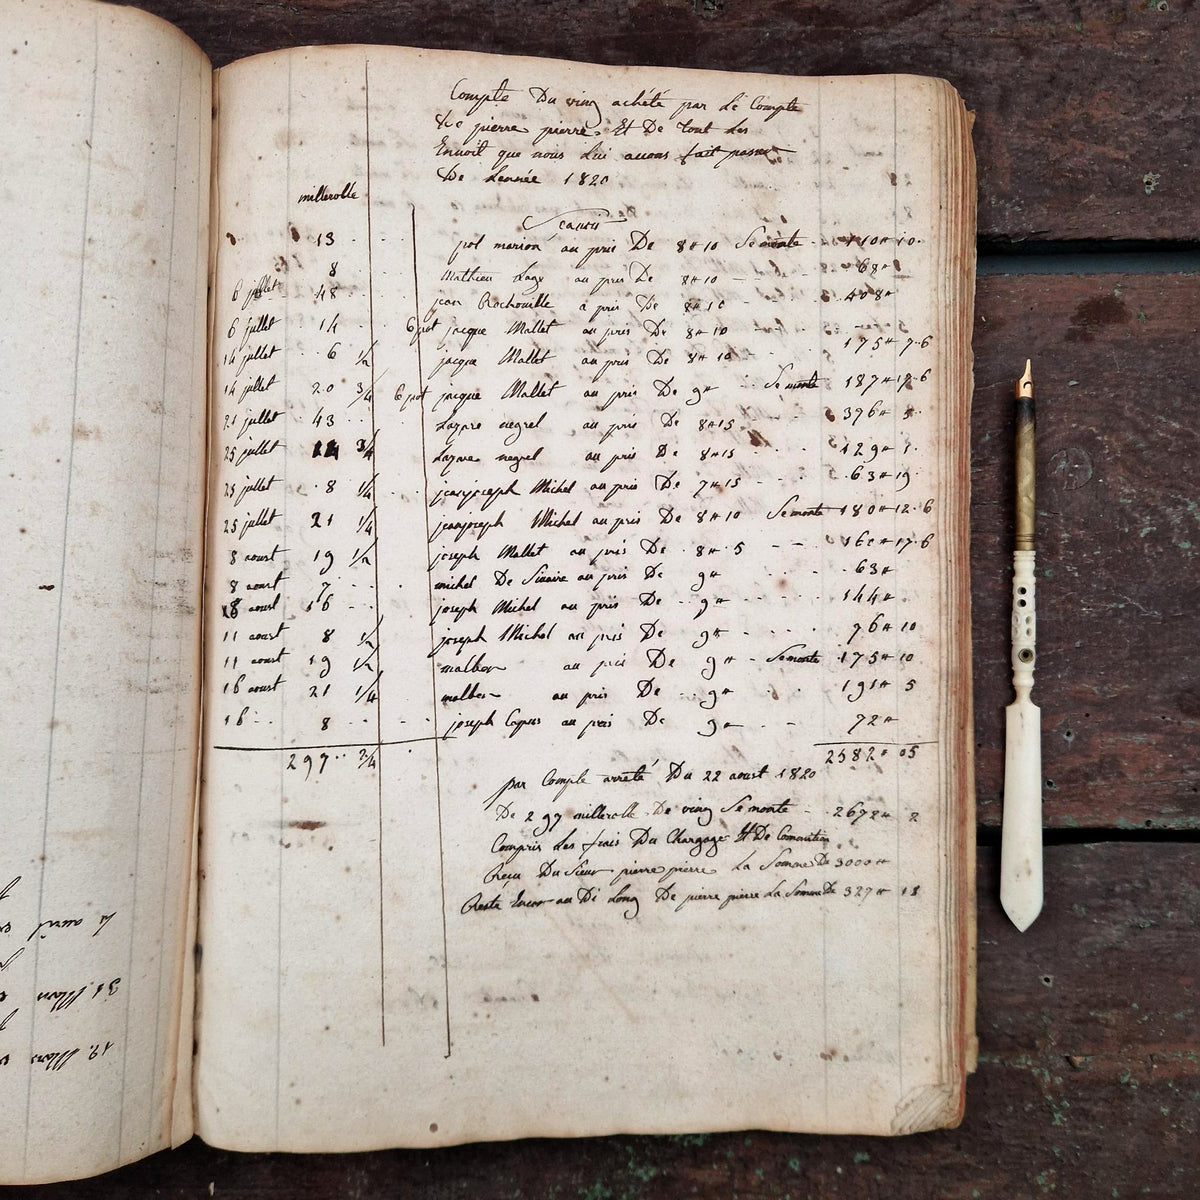 Compte Du ving achété par Le Compte
De pierre pierre. Et De tout Les
Envoit que nous Lui avons fait passer
De Lennée 1820
millerolle
Scavoir
13 pol marion au pris De 8# 10 Se monte 110# 10
8 Mathieu Lage au pris De 8# 10 68#
6 jullet 48 jean Rochouille à pris De 8# 10 408#
6 jullet 14 6 pot jacque Mallet au pris De 8# 10
14 jullet 6 1/2 jacque Mallet au pris De 8# 10 175# 7.6
14 jullet 20 3/4 6 pot jacque Mallet au pris De 9# Se monte 187# 17.6
21 jullet 43 Lazare negrel au pris De 8# 15 376# 5
25 jullet 14 3/4 Lazare negrel au pris De 8# 15 129# 1
25 jullet 8 1/4 jeanjoseph Michel au pris De 7# 15 63# 19
25 jullet 21 1/4 jeanjoseph Michel au pris De 8# 10 Se monte 180# 12.6
8 aoust 19 1/2 joseph Mallet au pris De 8# 5 160# 17.6
8 aoust 7 michel De au pris De 9# 63#
8 aoust 16 joseph Michel au pris De 9# 144#
11 aoust 8 1/2 joseph Michel au pris De 9# 76# 10
11 aoust 19 1/2 malber au pris De 9# Se monte 175# 10
16 aoust 21 1/4 malber au pris De 9# 191# 5
16 8 joseph Capus au pris De 9# 72#
297 3/4 2582# 05
par Compte arreté Du 22 aoust 1820
De 297 millerolle De ving Se monte 2672# 2
Compris Les frais Du Chargage Et De Comantion
Reçu Du Sieur pierre pierre La Somme De 3000#
Reste Encor au Di Long De pierre pierre La Somme De 327# 18
Le avril
31 Mars
19. Mars